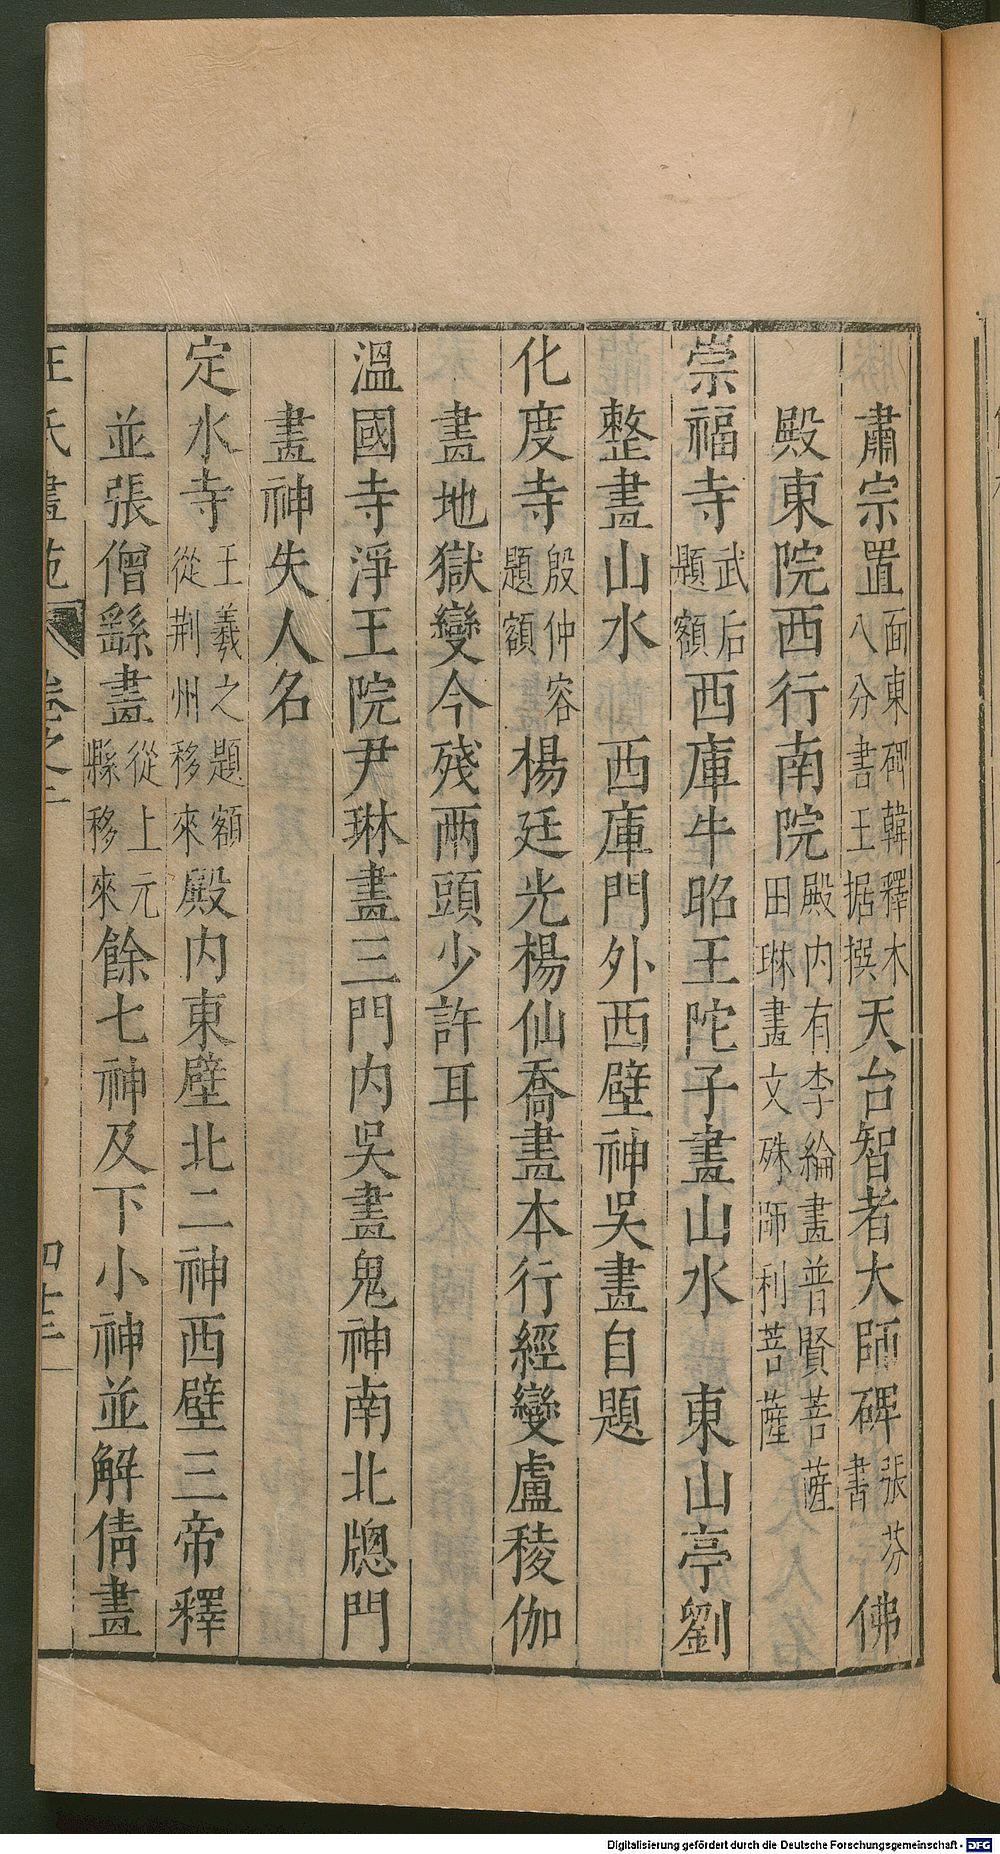 肅宗置面東碑韓釋木八分書王据撰天台智者大師碑張芬書佛
殿東院西行南院殿内有李綸畫普賢菩薩田琳畫文殊師利菩薩
崇福寺武后題額西庫牛昭王陀子畫山水　東山亭劉
整畫山水　西庫門外西壁神吳畫自題
化度寺殷仲容題額楊廷光楊仙喬畫本行經變盧稜伽
畫地獄變今殘兩頭少許耳
溫國寺淨王院尹琳畫三門内吳畫鬼神南北牕門
畫神失人名
定水寺王羲之題額從荆州移來殿内東壁北二神西壁三帝釋
並張僧繇畫從上元縣移來餘七神及下小神並解倩畫
王氏畫苑　卷之　四十三
Digitalisierung gefördert durch die Deutsche Forschungsgemeinschaft - DFG